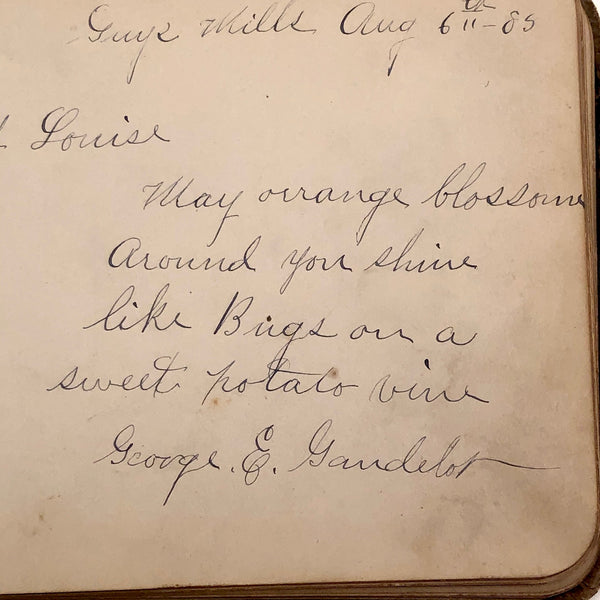 Guys Mills Aug 6th - 85
Louise
May orrange blossoms
Around you shine
like Bugs on a
sweet potato vine
George. E. Gandelot